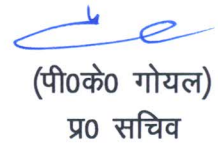 (पी0के0 गोयल)
प्र0 सचिव